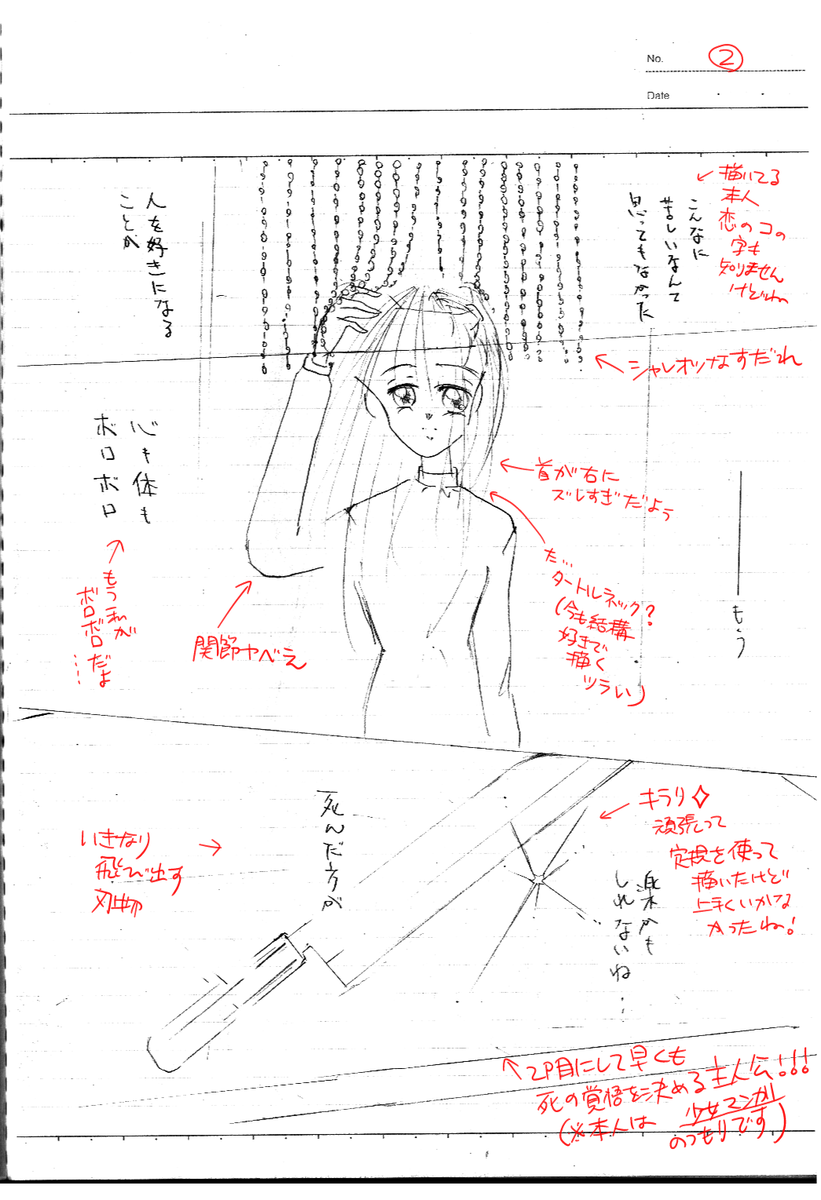 No. ②
Date
描いてる
本人
恋のコの
字も
知りません
けどね
こんなに
苦しいなんて
思ってもなかった
人を好きになる
ことが
シャレオツなすだれ
首が右に
ズレすぎだよぅ
た…
タートルネック?
(今も結構
好きで
描く
ツラい)
――もう
心も体も
ボロボロ
もう私が
ボロボロだよ
……
関節ヤベぇ
キラリ
頑張って
定規を使って
描いたけど
上手くいかな
かったね!
死んだ方が
楽かも
しれないね…
いきなり
飛び出す
刃物
2P目にして早くも
死の覚悟を決める主人公!!!
(※本人は 少女マンガ
のつもりです)